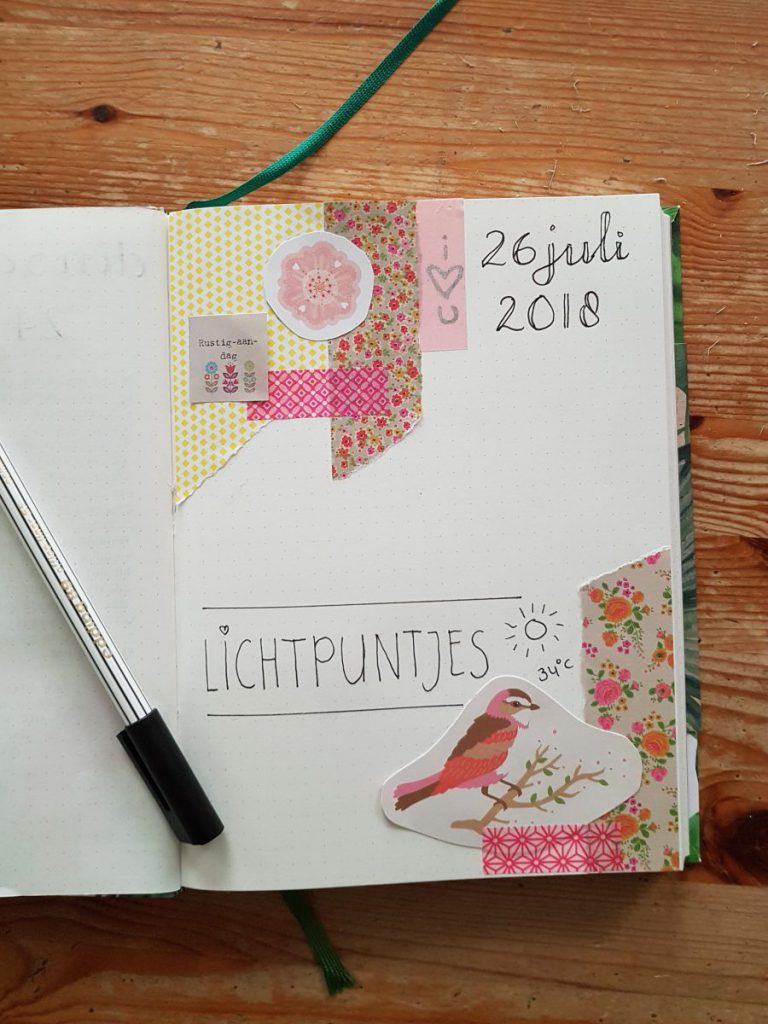 i
♡
u
26 juli
2018
Rustig-aan-
dag
LICHTPUNTJES
34°C